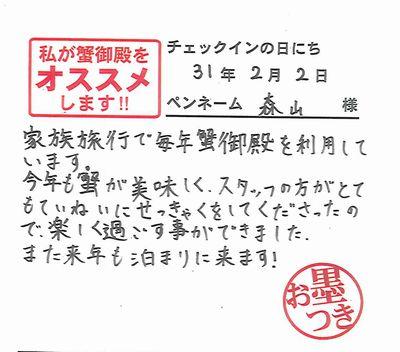 私が蟹御殿を
オススメ
します!!
チェックインの日にち
31年2月2日
ペンネーム 森山 様
家族旅行で毎年蟹御殿を利用して
います。
今年も蟹が美味しく、スタッフの方がとて
もていねいにせっきゃくをしてくださったの
で、楽しく過ごす事ができました。
また来年も泊まりに来ます!
お墨つき